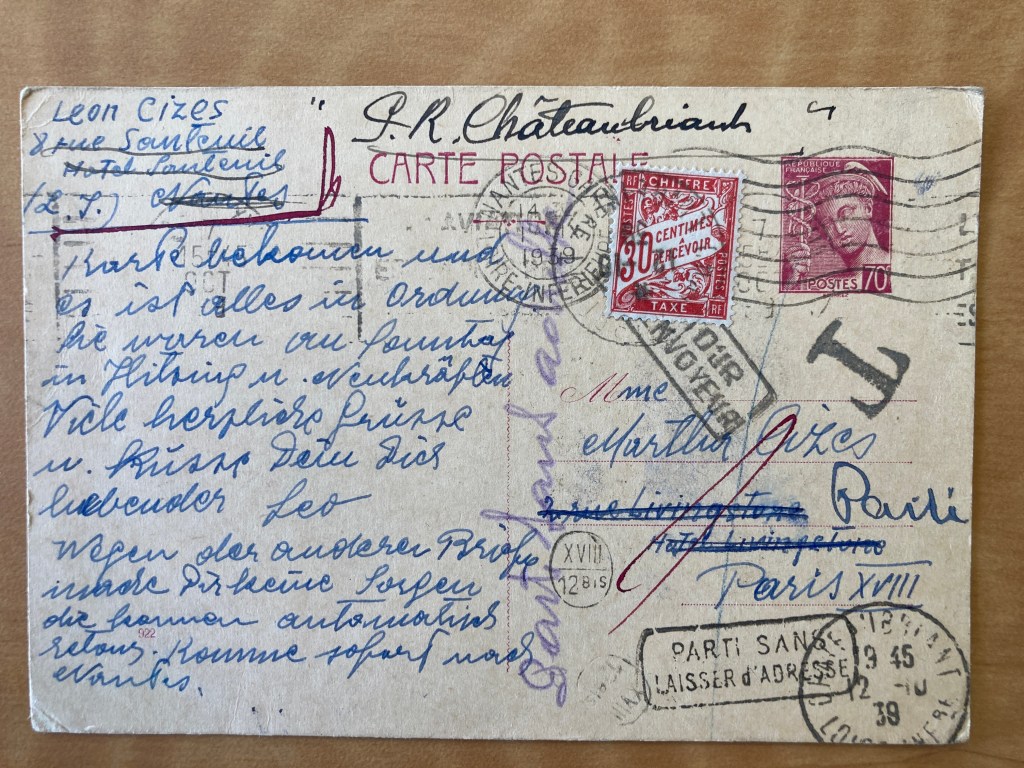 Leon Cizes
8 rue Santeuil
Hotel Santeuil
Nantes
(L. I.)
" P.R. Châteaubriant "
CARTE POSTALE
RÉPUBLIQUE
FRANÇAISE
POSTES 70
RF CHIFFRE
30 CENTIMES
À PERCEVOIR
POSTES
TAXE RF
T
Karte bekommen und
es ist alles in Ordnung
Sie waren am Sonntag
in u.
Viele herzliche Grüsse
u. Küsse Dein Dich
liebender Leo
Wegen der anderen Briefe
mache Dir keine Sorgen
die kommen automatisch
retour. Komme sofort nach
Nantes.
922
Parti sans adresse
Mme
Martha Cizes
rue Livingstone
Parti
Hotel Livingstone
Paris XVIII
XVIII
12 BIS
PARTI SANS
LAISSER d'ADRESSE
9 45
12 -10
39